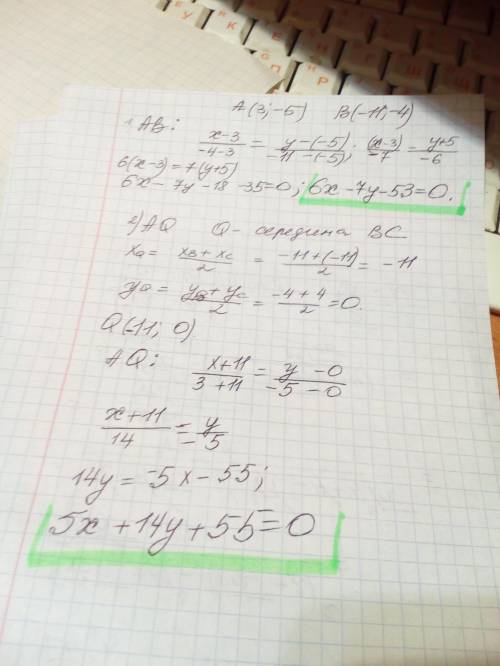 A(3;-5) B(-11;-4)
1. AB:
(x-3)/(-4-3) = (y-(-5))/(-11-(-5)); (x-3)/(-7) = (y+5)/(-6)
6(x-3)=7(y+5)
6x-7y-18-35=0; 6x-7y-53=0.
2) AQ Q- середина BC
xQ= (xB+xC)/2 = (-11+(-11))/2 = -11
yQ= (yB+yC)/2 = (-4+4)/2 =0.
Q(-11; 0)
AQ: (x+11)/(3+11) = (y-0)/(-5-0)
(x+11)/14 = y/(-5)
14y=-5x-55;
5x+14y+55=0